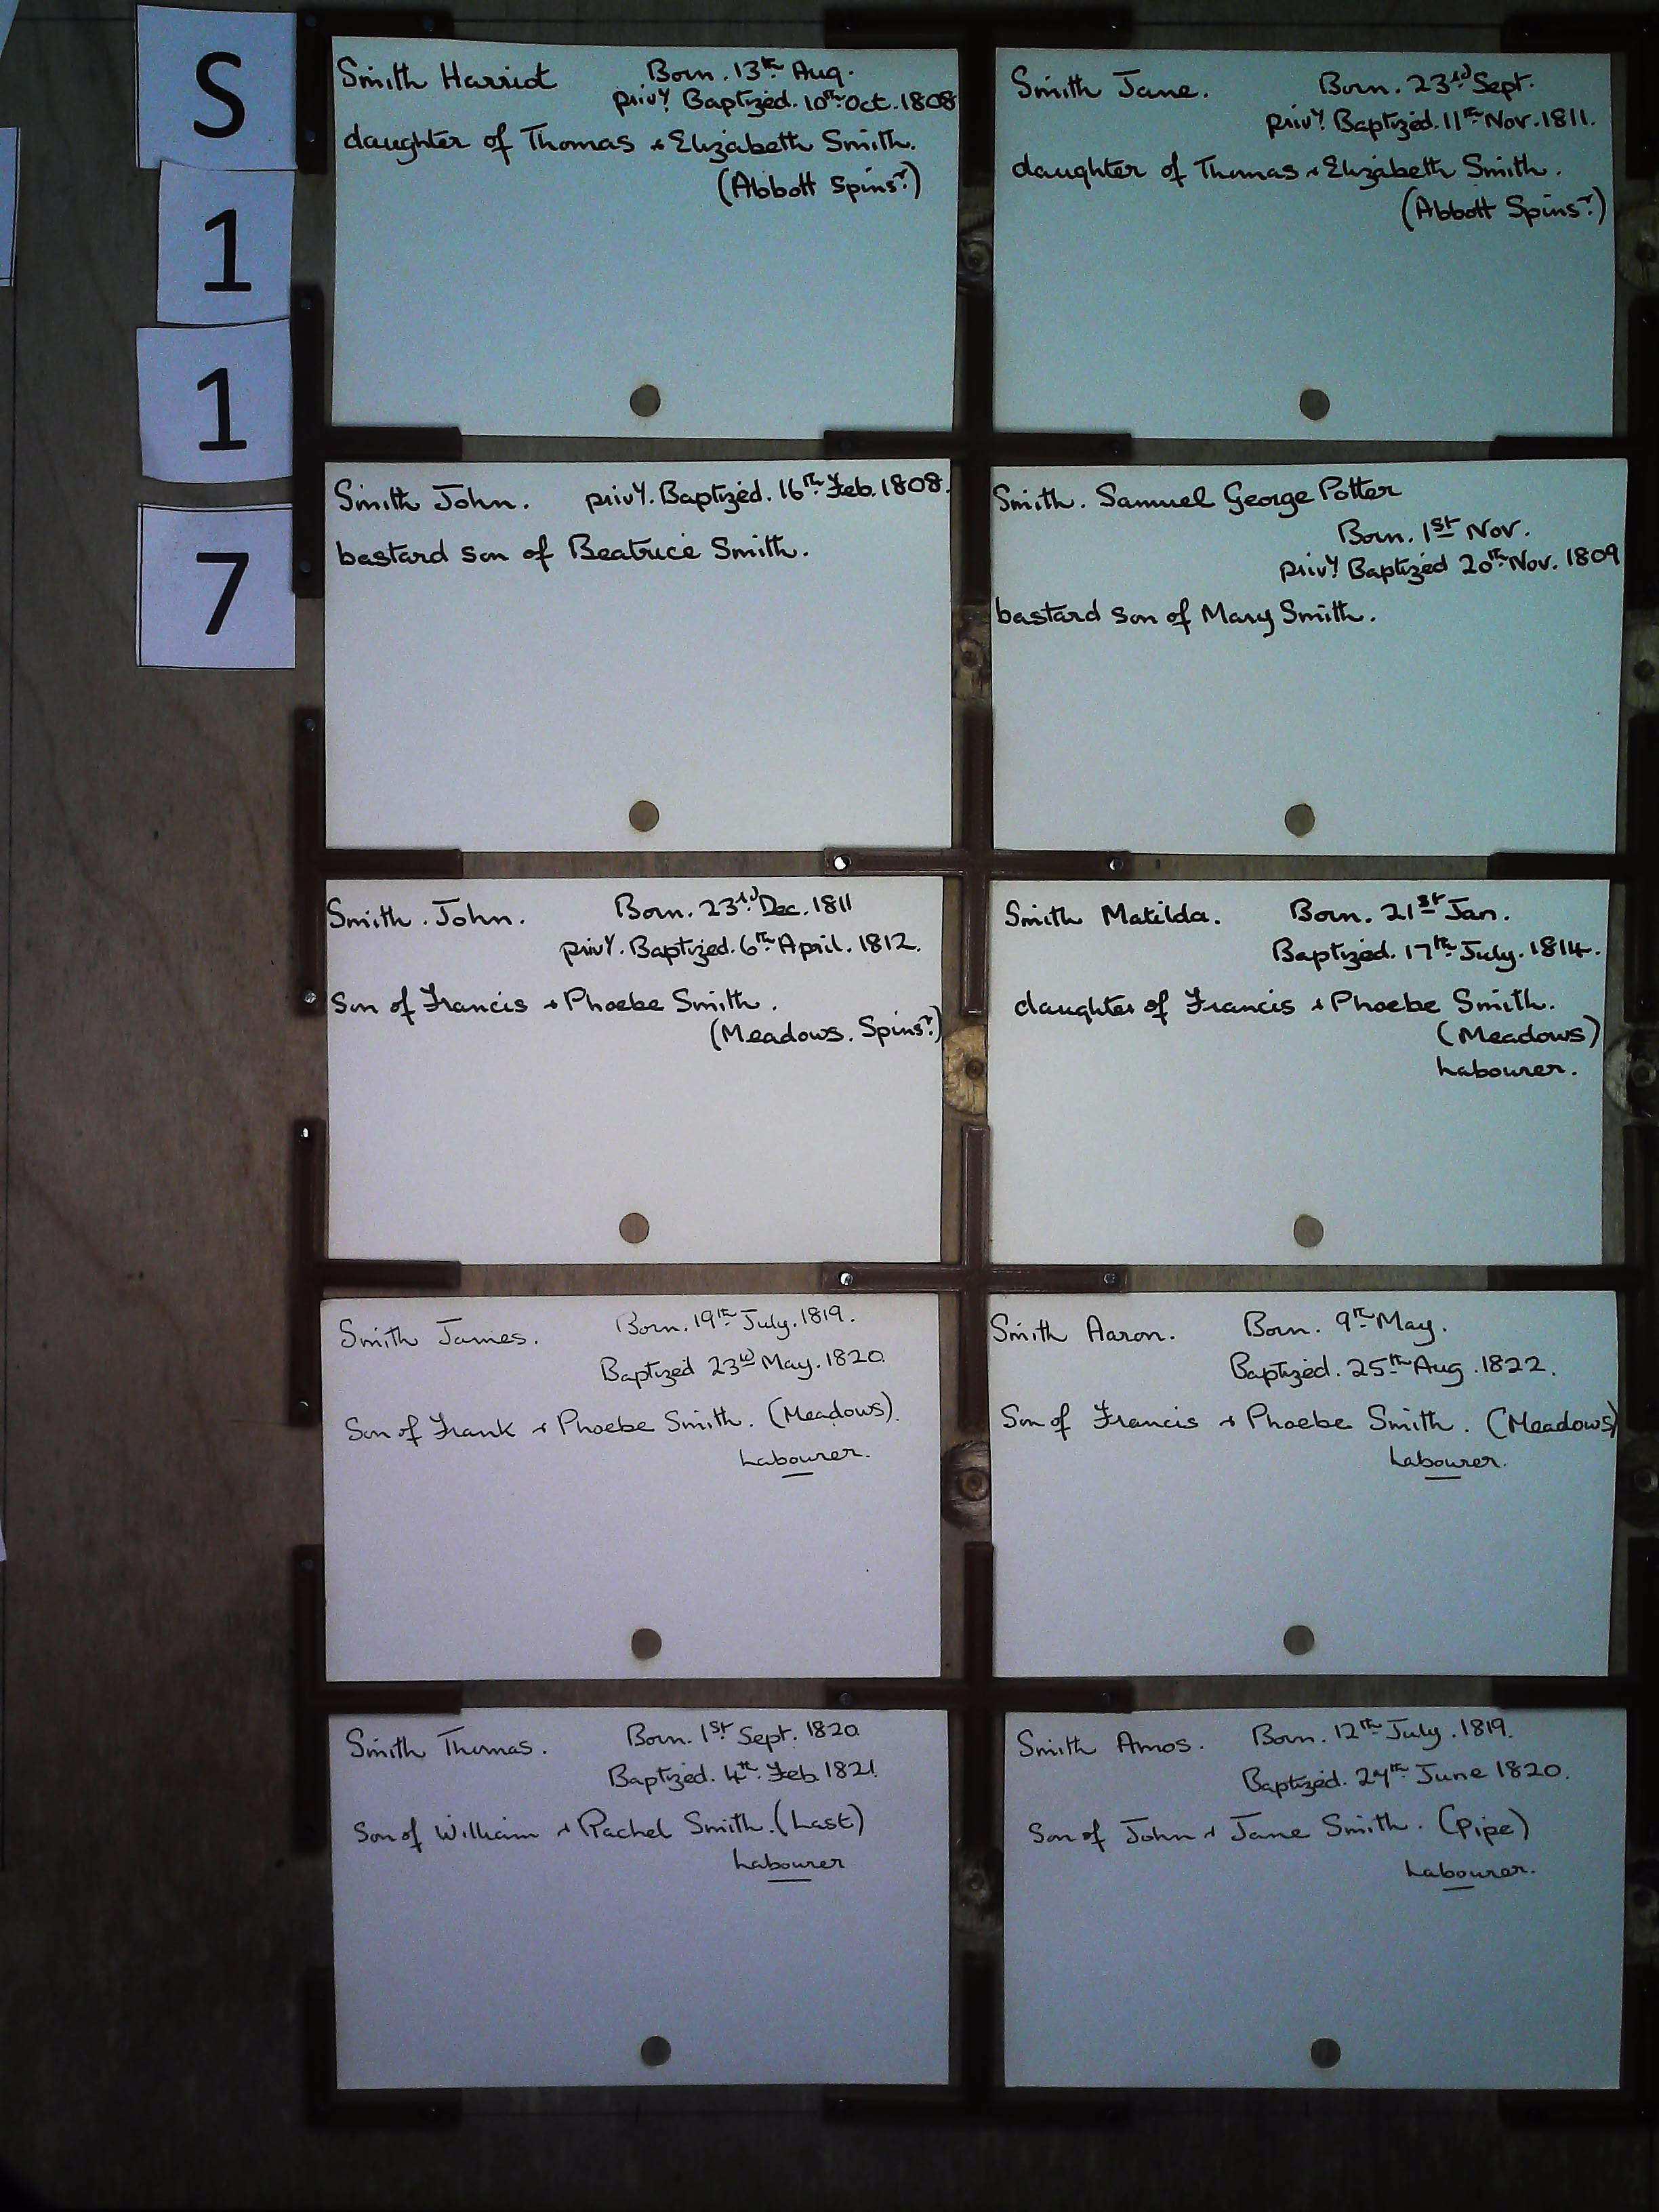 S
1
1
7
Smith Harriot Born. 13th Aug.
privy. Baptized. 10th Oct. 1808
daughter of Thomas & Elizabeth Smith.
(Abbott Spinsr.)
Smith Jane. Born. 23rd Sept.
privy. Baptized. 11th Nov. 1811.
daughter of Thomas & Elizabeth Smith.
(Abbott Spinsr.)
Smith John. privy. Baptized. 16th Feb. 1808.
bastard son of Beatrice Smith.
Smith. Samuel George Potter
Born. 1st Nov.
privy. Baptized 20th Nov. 1809
bastard son of Mary Smith.
Smith. John. Born. 23rd Dec. 1811
privy. Baptized. 6th April. 1812.
Son of Francis & Phoebe Smith.
(Meadows. Spinsr.)
Smith Matilda. Born. 21st Jan.
Baptized. 17th July. 1814.
daughter of Francis & Phoebe Smith.
(Meadows)
Labourer.
Smith James. Born. 19th July. 1819.
Baptized 23rd May. 1820.
Son of Frank & Phoebe Smith. (Meadows).
Labourer.
Smith Aaron. Born. 9th May.
Baptized. 25th Aug. 1822.
Son of Francis & Phoebe Smith. (Meadows)
Labourer.
Smith Thomas. Born. 1st Sept. 1820
Baptized. 4th Feb. 1821.
Son of William & Rachel Smith. (Last)
Labourer
Smith Amos. Born. 12th July. 1819.
Baptized. June 1820.
Son of John & Jane Smith. (Pipe)
Labourer.